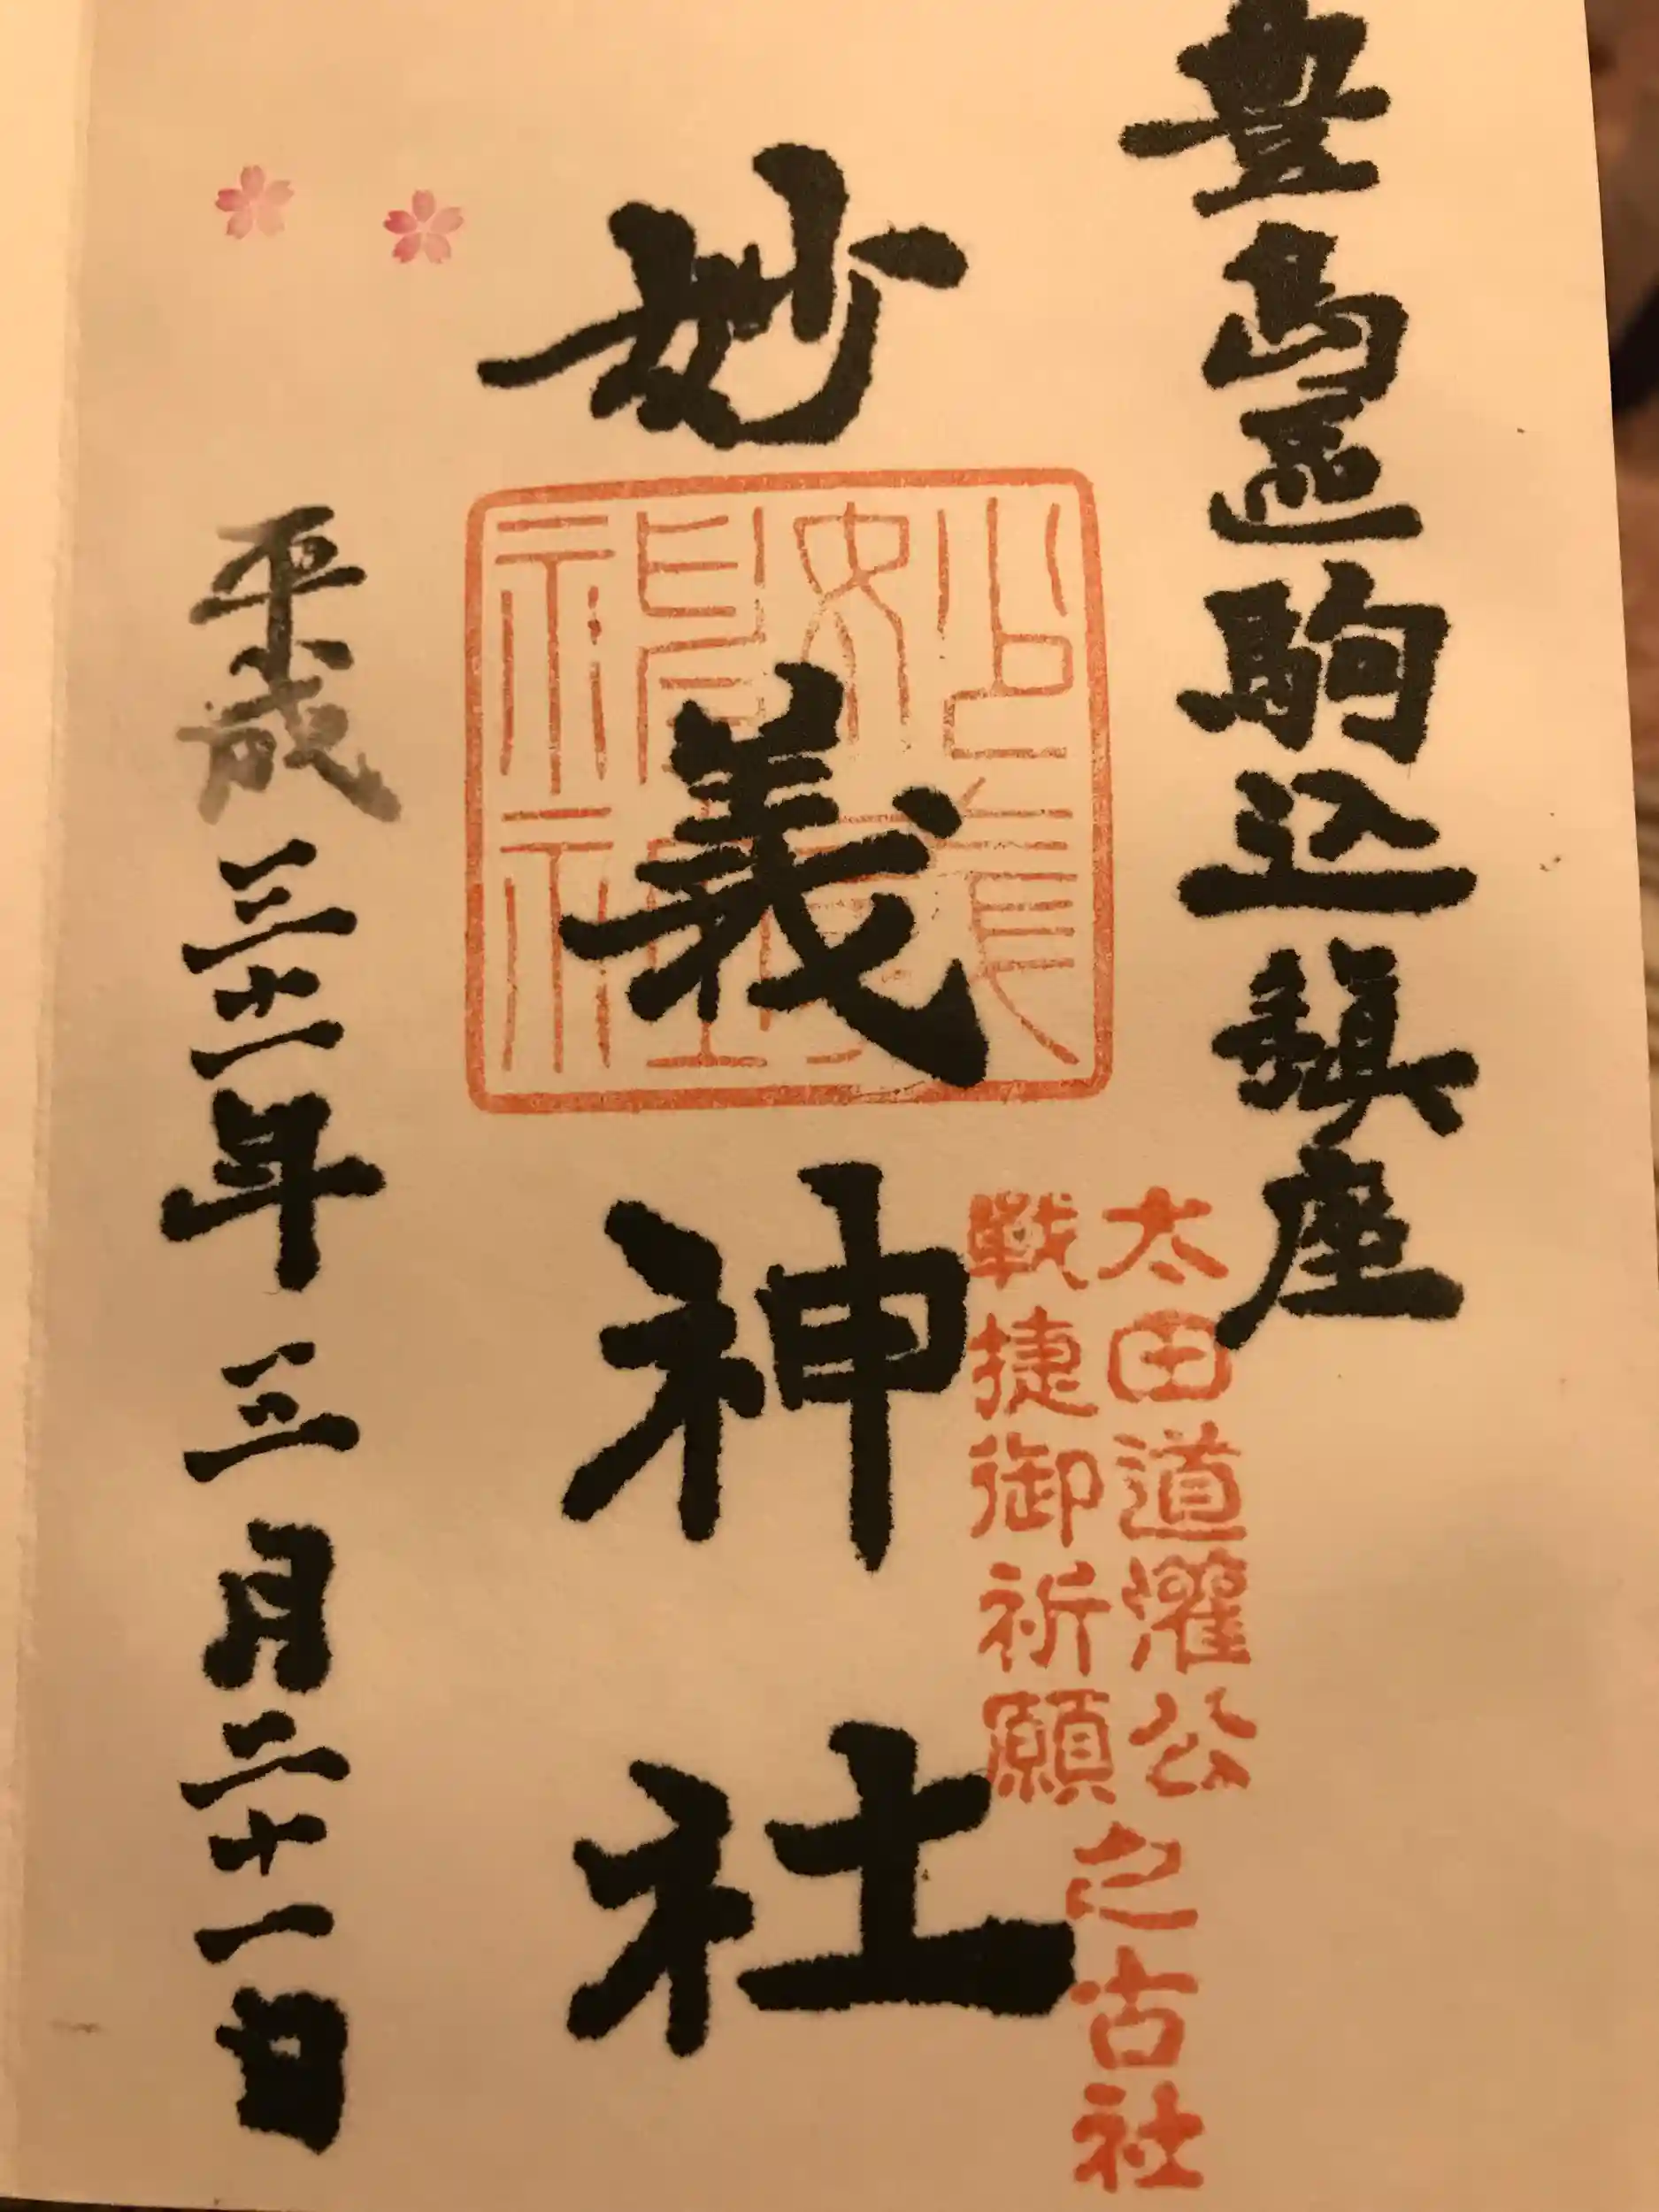 豊島區駒込鎮座
太田道灌公
戰捷御祈願
之古社
妙義神社
平成三十一年三月二十一日